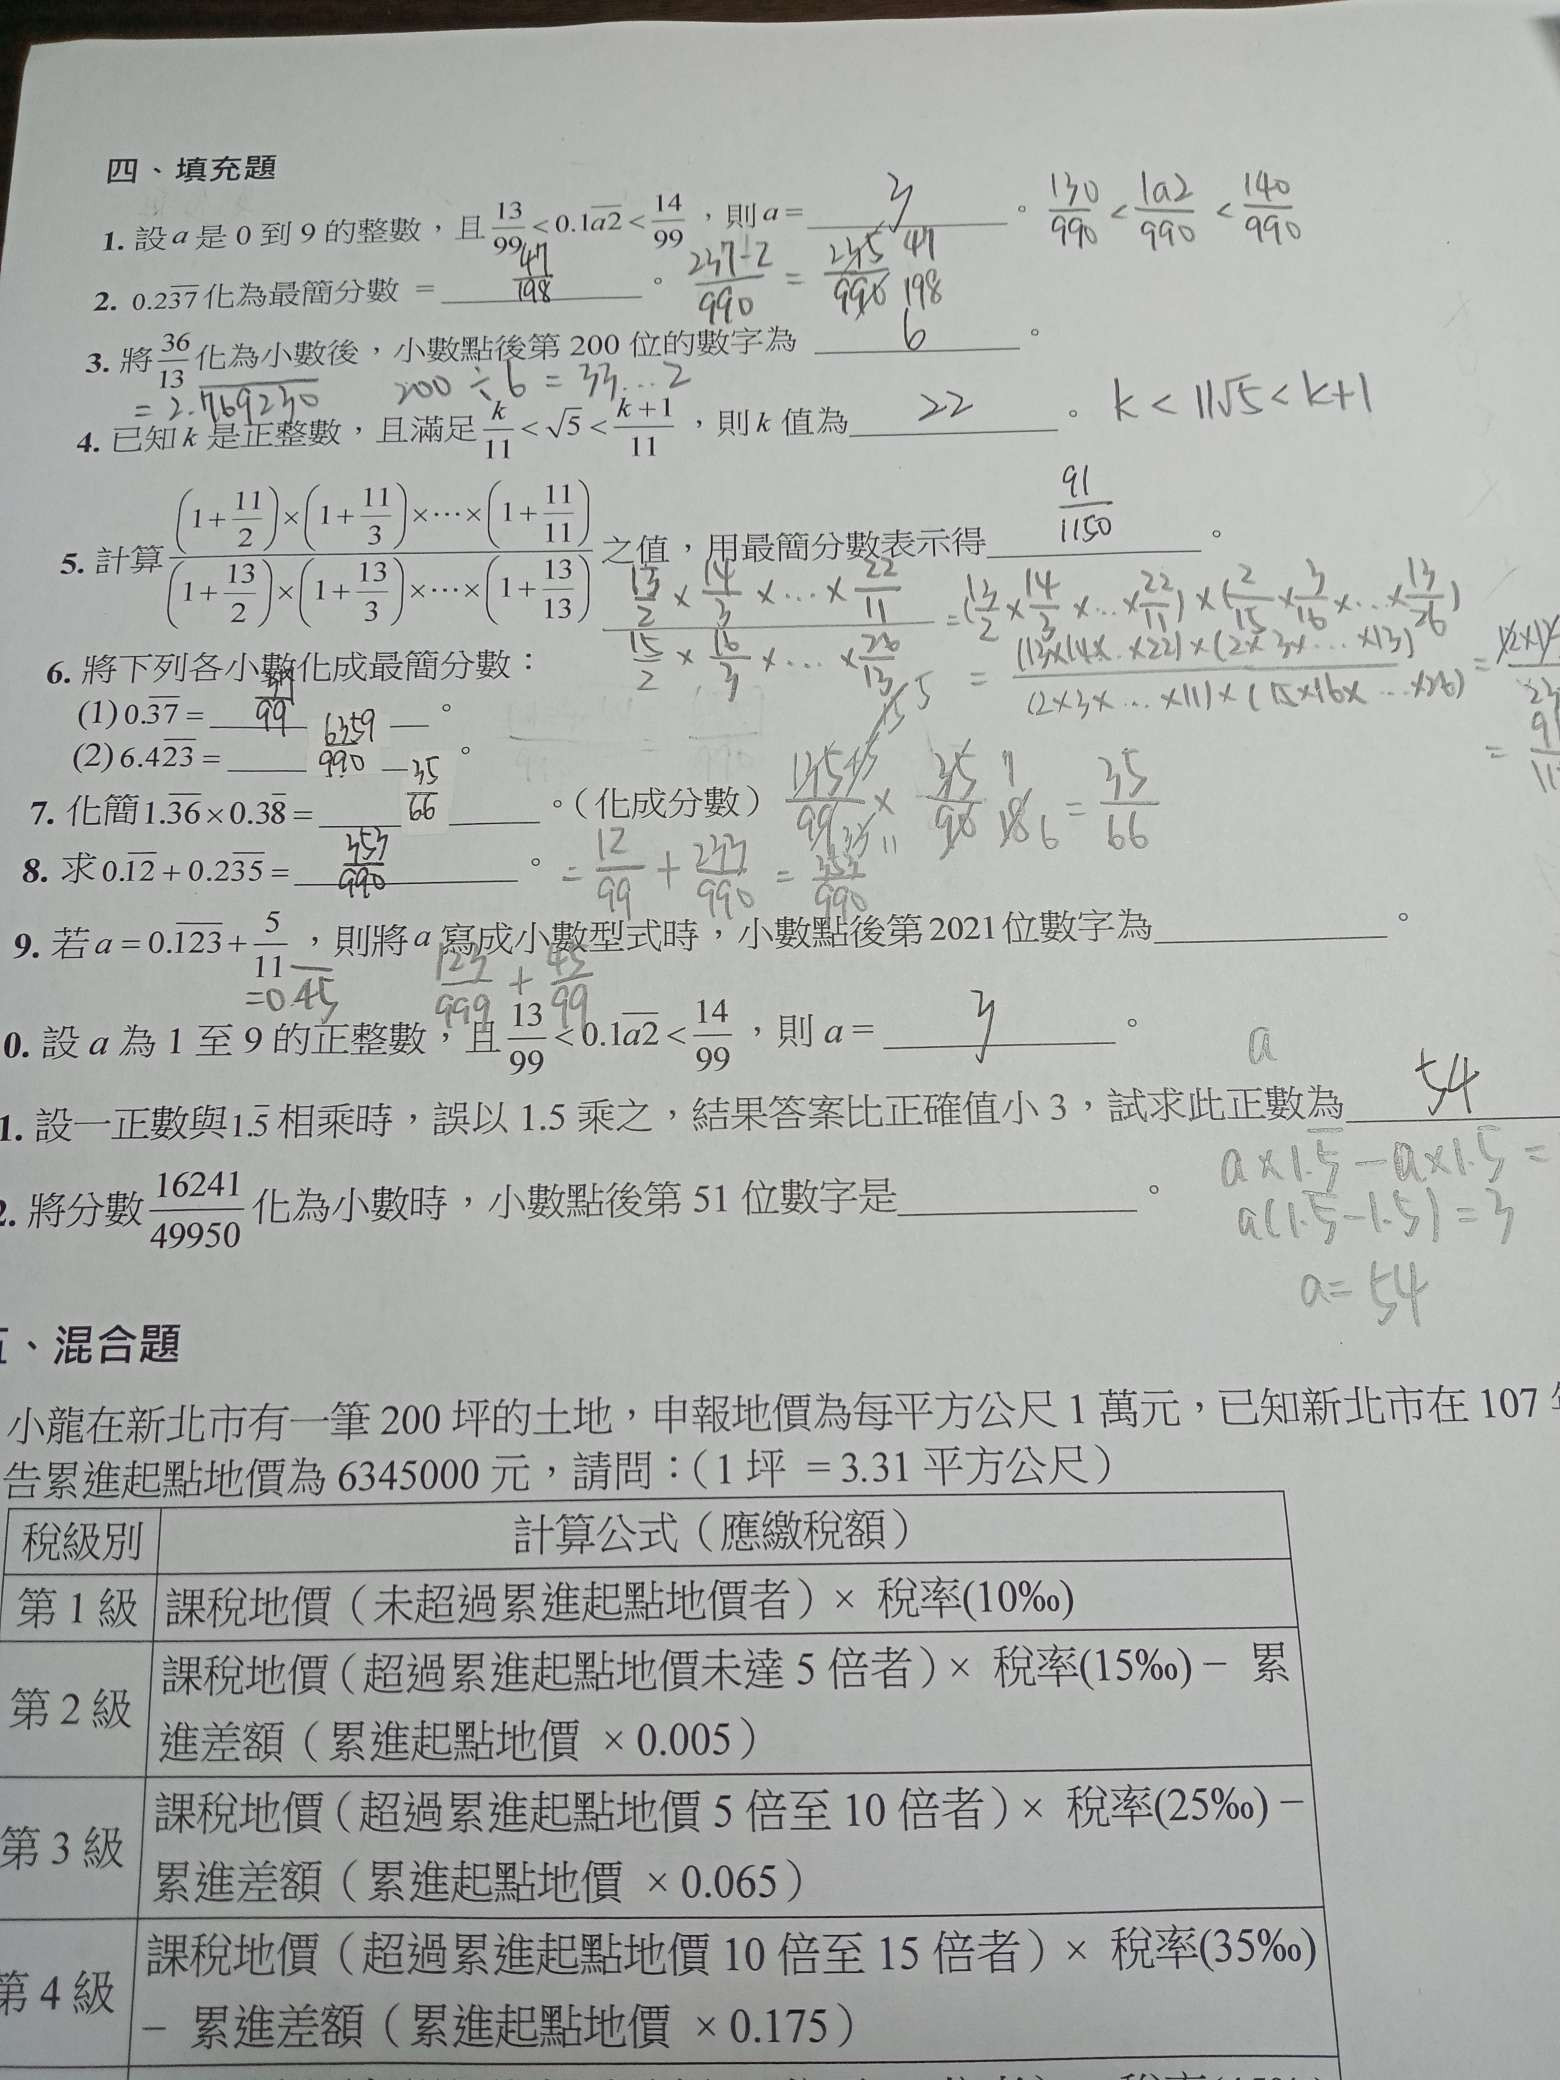 四、填充題
1. 設 a 是 0 到 9 的整數，且 13/99 < 0.1a̅2̅ < 14/99，則 a = 3 。 130/990 < 1a2/990 < 140/990
2. 0.23̅7̅ 化為最簡分數 = 47/198 。 237-2/990 = 235/990 47/198
3. 將 36/13 化為小數後，小數點後第 200 位的數字為 6 。
= 2.7̅6̅9̅2̅3̅0̅ 200 ÷ 6 = 33...2
4. 已知 k 是正整數，且滿足 k/11 < √5 < k+1/11，則 k 值為 22 。 k < 11√5 < k+1
5. 計算 (1+11/2)×(1+11/3)×⋯×(1+11/11) / (1+13/2)×(1+13/3)×⋯×(1+13/13) 之值，用最簡分數表示得 91/1150 。
13/2 × 14/3 × ... × 22/11 / 15/2 × 16/3 × ... × 26/13 = (13/2 × 14/3 × ... × 22/11) × (2/15 × 3/16 × ... × 13/26)
= (13×14×...×22)×(2×3×...×13) / (2×3×...×11)×(15×16×...×26) =
6. 將下列各小數化成最簡分數：
(1) 0.3̅7̅ = 37/99 。
(2) 6.42̅3̅ = 6359/990 。
7. 化簡 1.3̅6̅ × 0.38̅ = 35/66 。（化成分數） 135/99 × 35/90 = 35/66
8. 求 0.1̅2̅ + 0.23̅5̅ = 353/990 。 = 12/99 + 233/990 = 353/990
9. 若 a = 0.1̅2̅3̅ + 5/11，則將 a 寫成小數型式時，小數點後第 2021 位數字為 。
=0.4̅5̅ 123/999 + 45/99
0. 設 a 為 1 至 9 的正整數，且 13/99 < 0.1a̅2̅ < 14/99，則 a = 3 。
a
1. 設一正數與 1.5̅ 相乘時，誤以 1.5 乘之，結果答案比正確值小 3，試求此正數為 54
a×1.5̅ - a×1.5 =
2. 將分數 16241/49950 化為小數時，小數點後第 51 位數字是 。
a(1.5̅-1.5) = 3
a = 54
、混合題
小龍在新北市有一筆 200 坪的土地，申報地價為每平方公尺 1 萬元，已知新北市在 107
告累進起點地價為 6345000 元，請問：（1 坪 = 3.31 平方公尺）
稅級別 計算公式（應繳稅額）
第 1 級 課稅地價（未超過累進起點地價者）× 稅率(10‰)
第 2 級 課稅地價（超過累進起點地價未達 5 倍者）× 稅率(15‰) − 累
進差額（累進起點地價 × 0.005）
第 3 級 課稅地價（超過累進起點地價 5 倍至 10 倍者）× 稅率(25‰) −
累進差額（累進起點地價 × 0.065）
第 4 級 課稅地價（超過累進起點地價 10 倍至 15 倍者）× 稅率(35‰)
− 累進差額（累進起點地價 × 0.175）